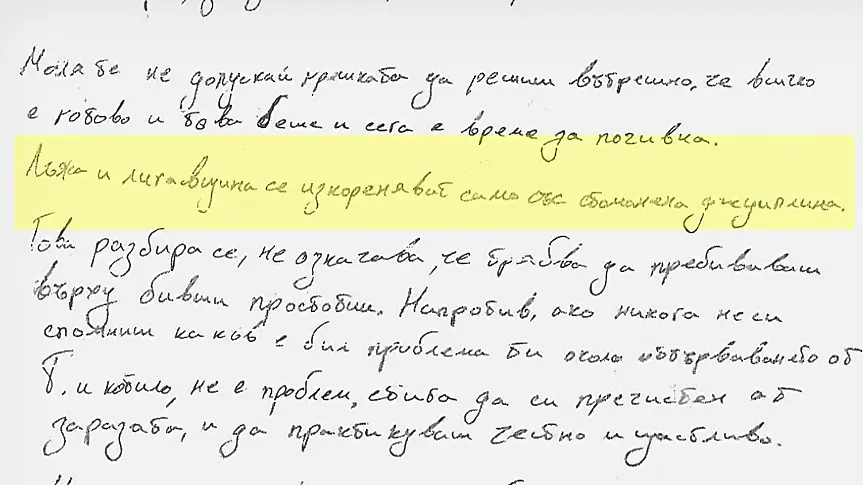 Моля те не допускай грешката да решиш вътрешно, че всичко
е готово и това беше и сега е време за почивка.
Лъжа и лигавщина се изкореняват само със стоманена дисциплина.
Това разбира се, не означава, че трябва да пребиваваш
върху бивши простотии. Напротив, ако никога не си
спомниш какъв е бил проблема ти около изтърваването от
Т. и котило, не е проблем, стига да си пречистен от
заразата, и да практикуваш честно и щастливо.